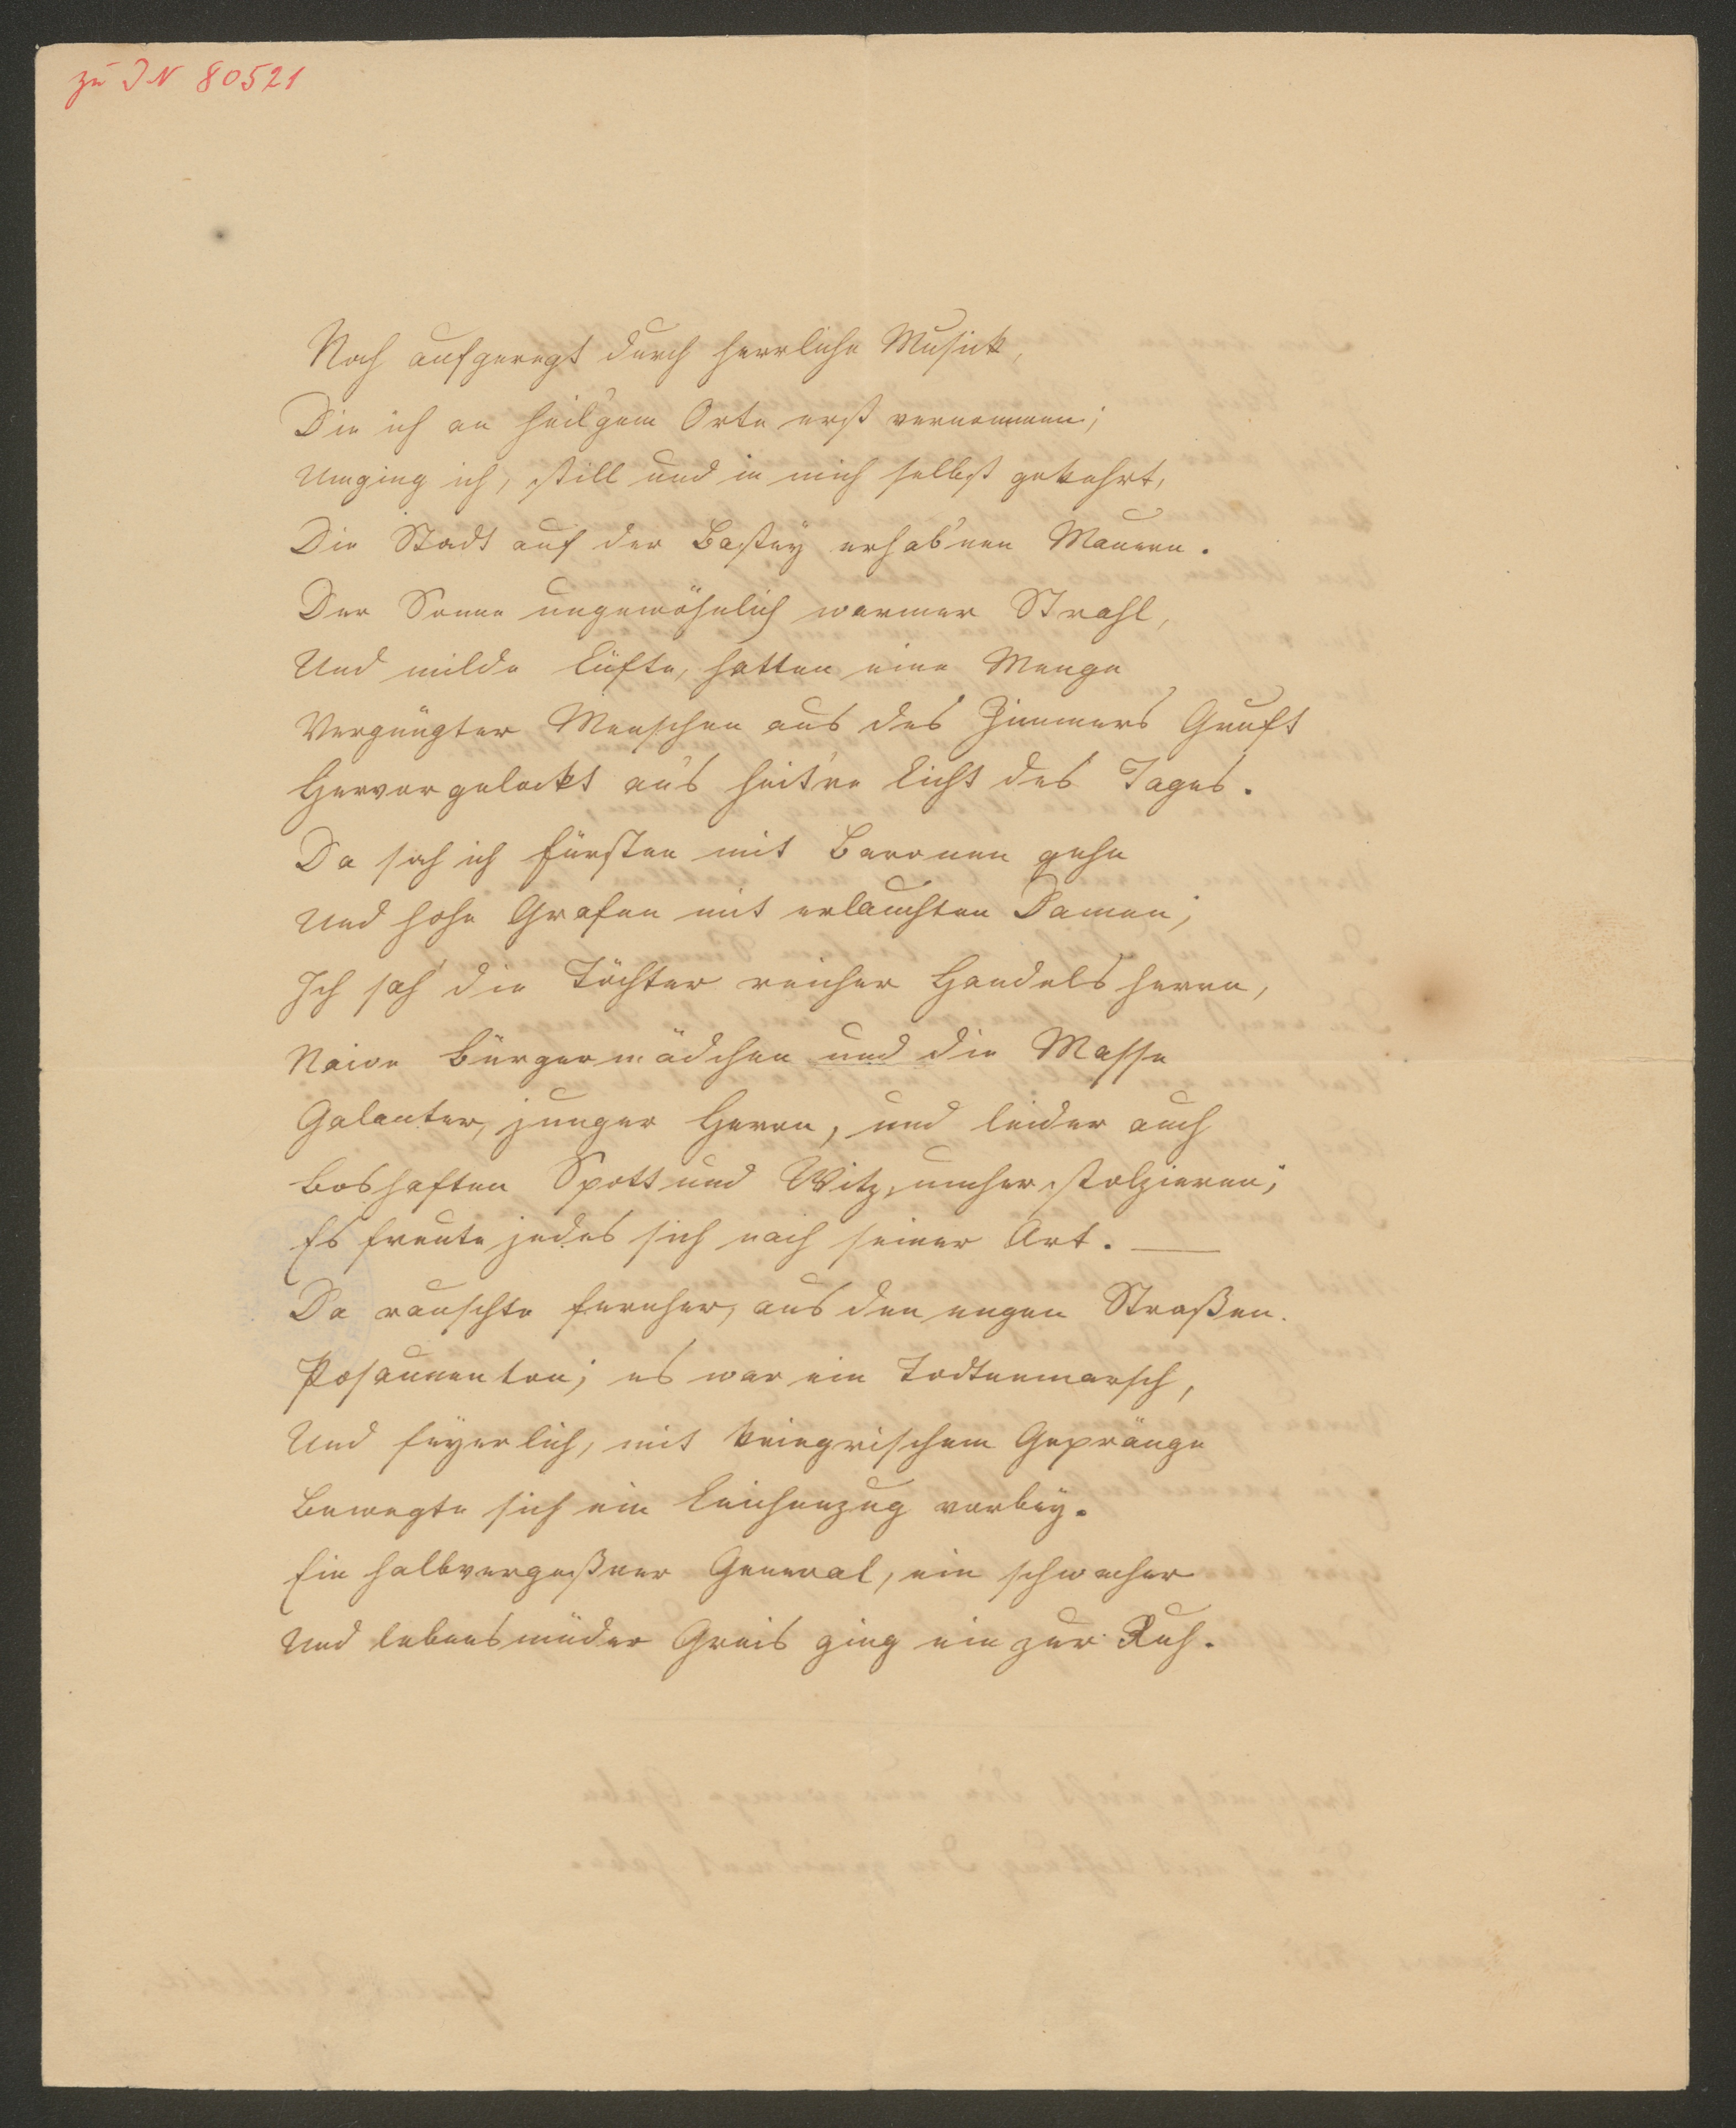 zu I N 80521
Noch aufgeregt durch herrliche Musick,
Die ich an heil'gem Orte erst vernommen;
Umging ich, still und in mich selbst gekehrt,
Die Stadt auf der Bastey erhab'nen Mauern.
Der Sonne ungewöhnlich warmer Strahl,
Und milde Lüfte, hatten eine Menge
Vergnügter Menschen aus des Zimmers Gruft
Hervorgelockt an's heit're Licht des Tages.
Da sah ich Fürsten mit Baronen gehn
Und hohe Grafen mit erlauchten Damen;
Ich sah' die Töchter reicher Handelsherrn,
Naive Bürgermädchen und die Masse
Galanter, junger Herrn, und leider auch
Boshaften Spott und Witz, umher stolzieren;
Es freute jedes sich nach seiner Art. —
Da rauschte fernher, aus den engen Straßen.
Posaunenton; es war ein Todtenmarsch,
Und feyerlich, mit kriegrischem Gepränge
Bewegte sich ein Leichenzug vorbey.
Ein halbvergeßner General, ein schwacher
Und lebensmüder Greis ging ein zur Ruh.